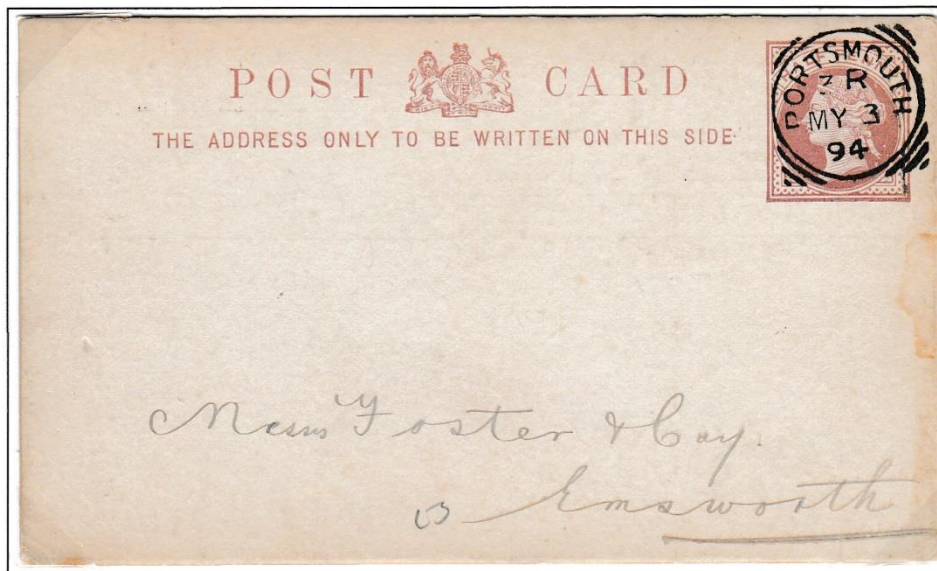 POST CARD
THE ADDRESS ONLY TO BE WRITTEN ON THIS SIDE
PORTSMOUTH
R
MY 3
94
Messrs Foster & Coy.
Emsworth